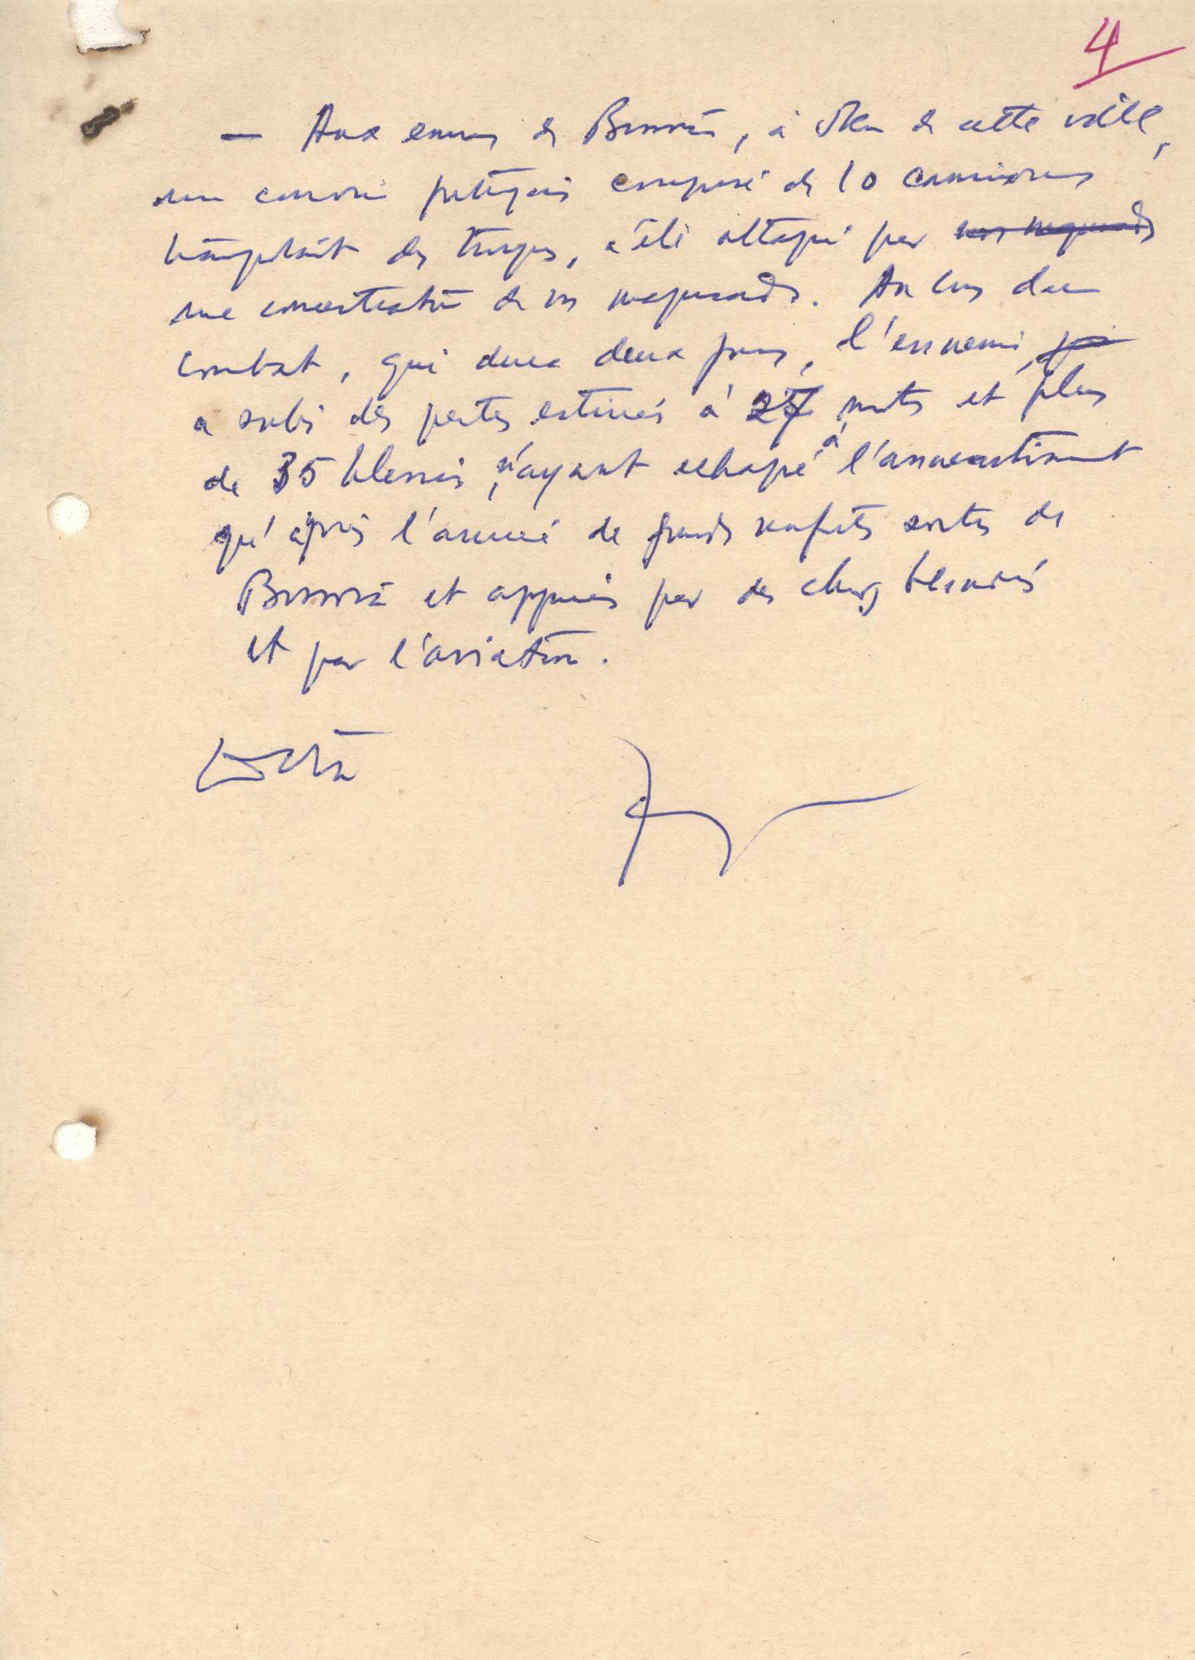 4
— Aux environs de Bissorã, à 8km de cette ville,
un convoi portugais composé de 10 camions
transportant des troupes, a été attaqué par nos maquisards
une concentration de nos maquisards. Au cours du
combat, qui dura deux jours, l'ennemi,
a subi des pertes estimées à 27 morts et plus
de 35 blessés, n'ayant echapé à l'anneantissement
qu'après l'arrivée de grands renforts sortis de
Bissorã et appuiés par des chars blindés
et par l'aviation.